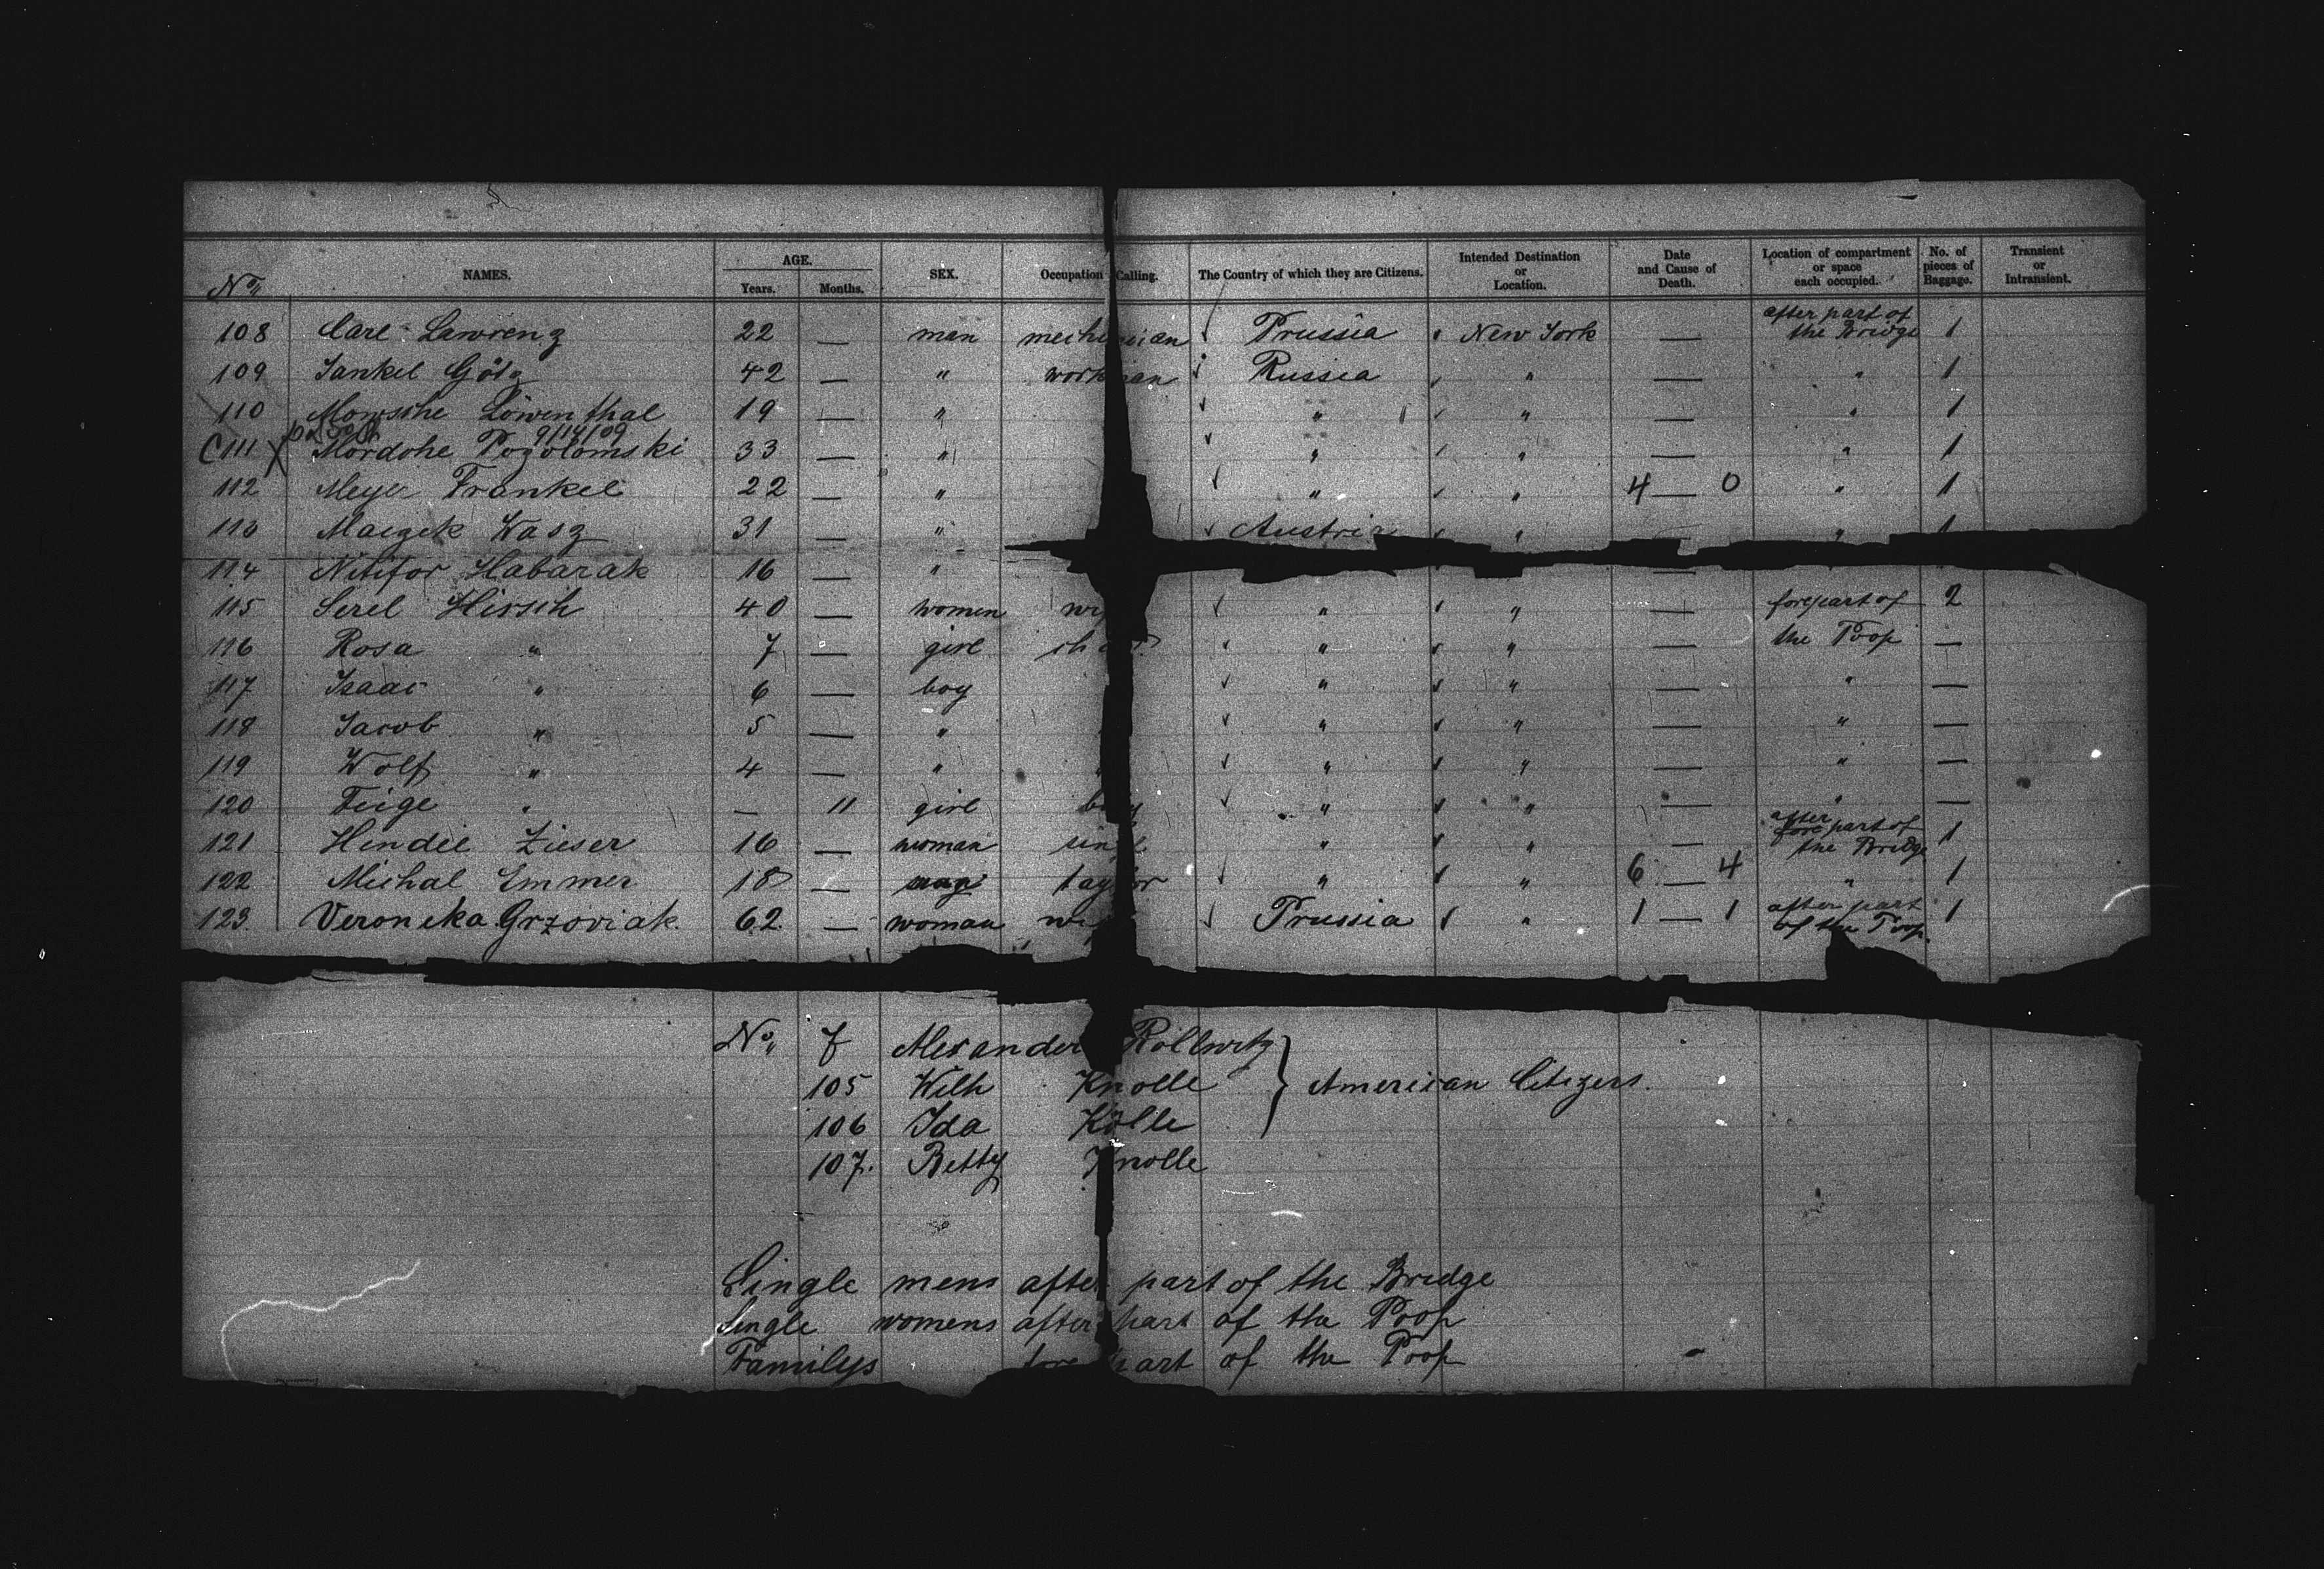 No. NAMES. AGE. Years. Months. SEX. Occupation Calling. The Country of which they are Citizens. Intended Destination or Location. Date and Cause of Death. Location of compartment or space each occupied. No. of pieces of Baggage. Transient or Intransient.
108 Carl Lawrenz 22 — man mechanician Prussia New York — after part of the Bridge 1
109 Jankel Götz 42 — " workman Russia " — " 1
110 Mowsche Löwenthal 19 — " " " — " 1
9/14/09
C 111 X Mordche Pogolomski 33 — " " " — " 1
112 Meyer Frankel 22 — " " " 4 — 0 " 1
113 Maizek Wasz 31 — " Austria " " 1
114 Nikifor Habarak 16 — " —
115 Serel Hirsch 40 — women " " — forepart of 2
116 Rosa " 7 — girl child " " — the Poop —
117 Isaac " 6 — boy " " — " —
118 Jacob " 5 — " " " — " —
119 Wolf " 4 — " " " — " —
120 Feige " — 11 girl " " — " —
121 Hindel Zieser 16 — woman single " " — after part of the Bridge 1
122 Michal Emmer 18 — taylor " " 6 — 4 " 1
123 Veronika Grzoviak 62 — woman Prussia " 1 — 1 after part of the Poop. 1
No. 7 Alexander Rollwitz
105 Wilh Knolle } American Citizens.
106 Ida Kölle
107. Betty Knolle
Single mens after part of the Bridge
Single womens after part of the Poop
Familys fore part of the Poop